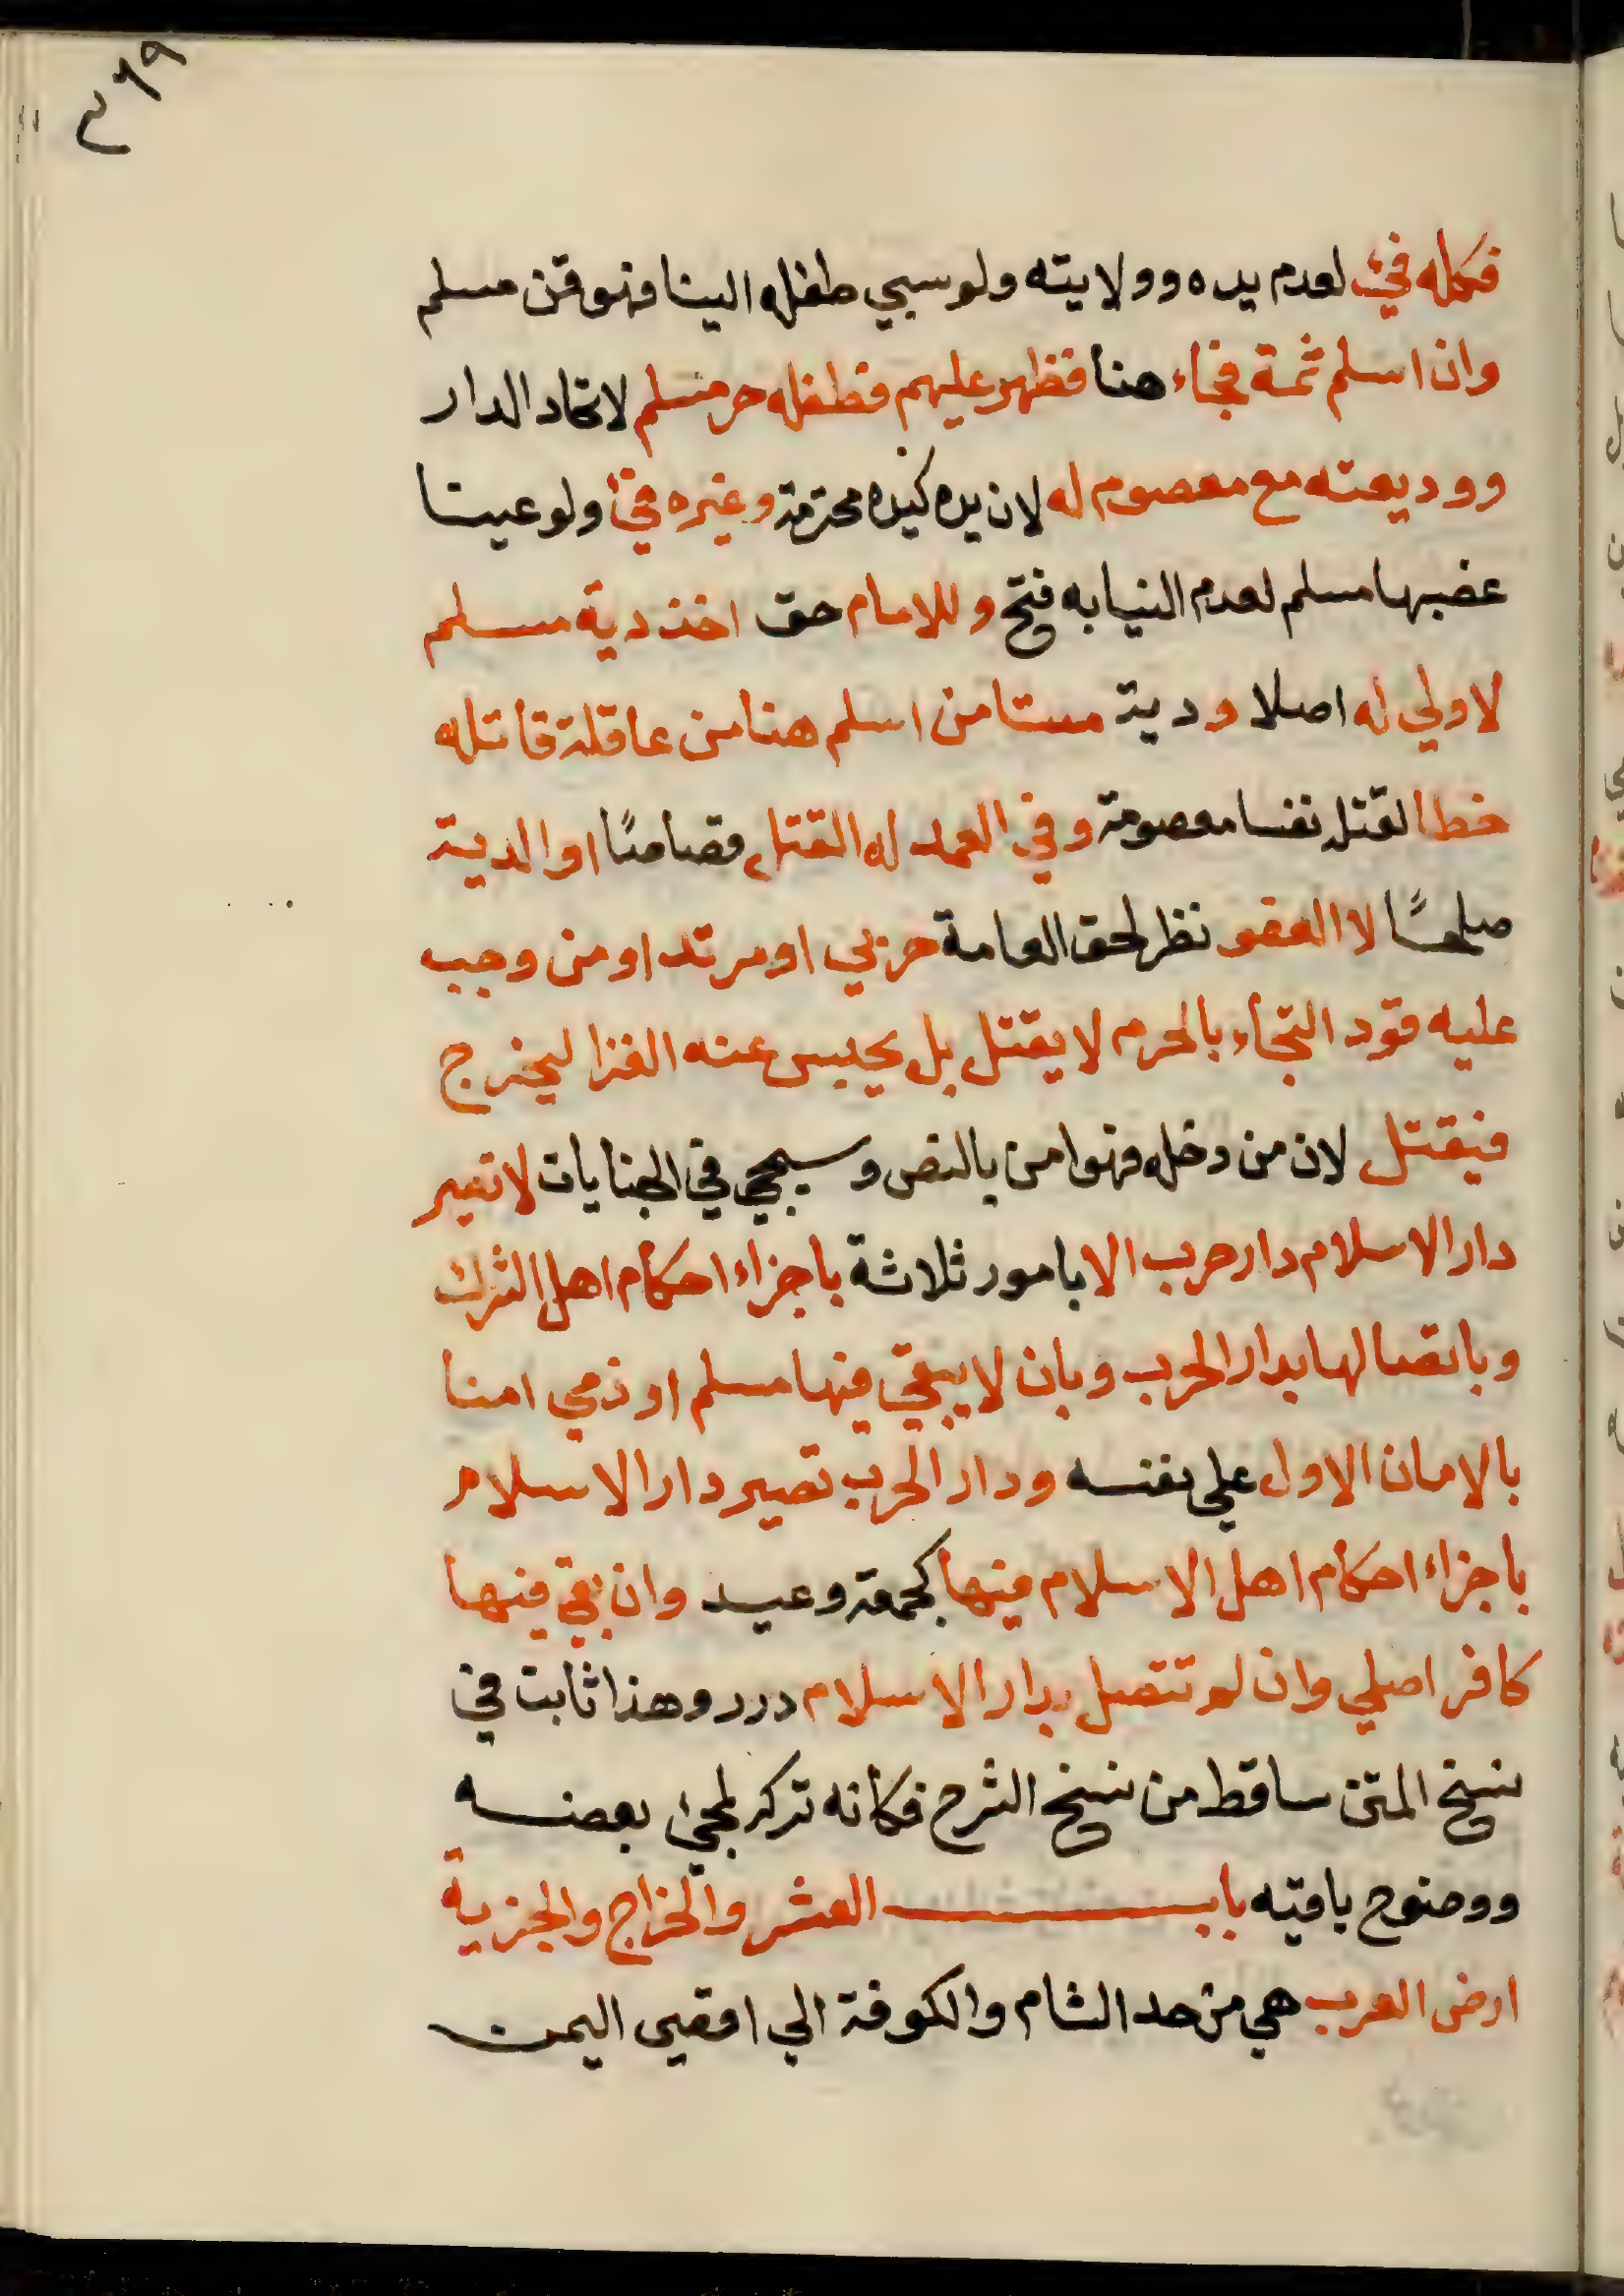 ٣٦٩
فكله فيئ لعدم يده وولايته ولو سبي طفله الينا فهو قن مسلم
وان اسلم ثمة فجاء هنا فظهر عليهم فطفله حر مسلم لاتحاد الدار
ووديعته مع معصوم له لان يده كيده محترمة وغيره فيئ ولو عينا
غصبها مسلم لعدم النيابه فتح وللامام حق اخذ دية مسلم
لا ولي له اصلا ودية مستامن اسلم هنا من عاقلة قاتله
خطا لقتله نفسا معصومة وفي العمد له القتل قصاصًا او الدية
صلحًا لا العفو نظر لحق العامة حربي او مرتد او من وجب
عليه قود التجاء بالحرم لا يقتل بل يحبس عنه الغذا ليخرج
فيقتل لان من دخله فهوامن بالنص وسيجي في الجنايات لا تصير
دار الاسلام دار حرب الا بامور ثلاثة باجزاء احكام اهل الشرك
وباتصالها بدار الحرب وبان لا يبقي فيها مسلم او ذمي امنا
بالامان الاول علي نفسه ودار الحرب تصير دار الاسلام
باجزاء احكام اهل الاسلام فيها كجمعة وعيد وان بقي فيها
كافر اصلي وان لم تتصل بدار الاسلام درر وهذا ثابت في
نسخ المتن ساقط من نسخ الشرح فكانه تركه لمجئ بعضه
ووضوح باقيه باب العشر والخراج والجزية
ارض العرب هي من حد الشام والكوفة الي اقصي اليمن